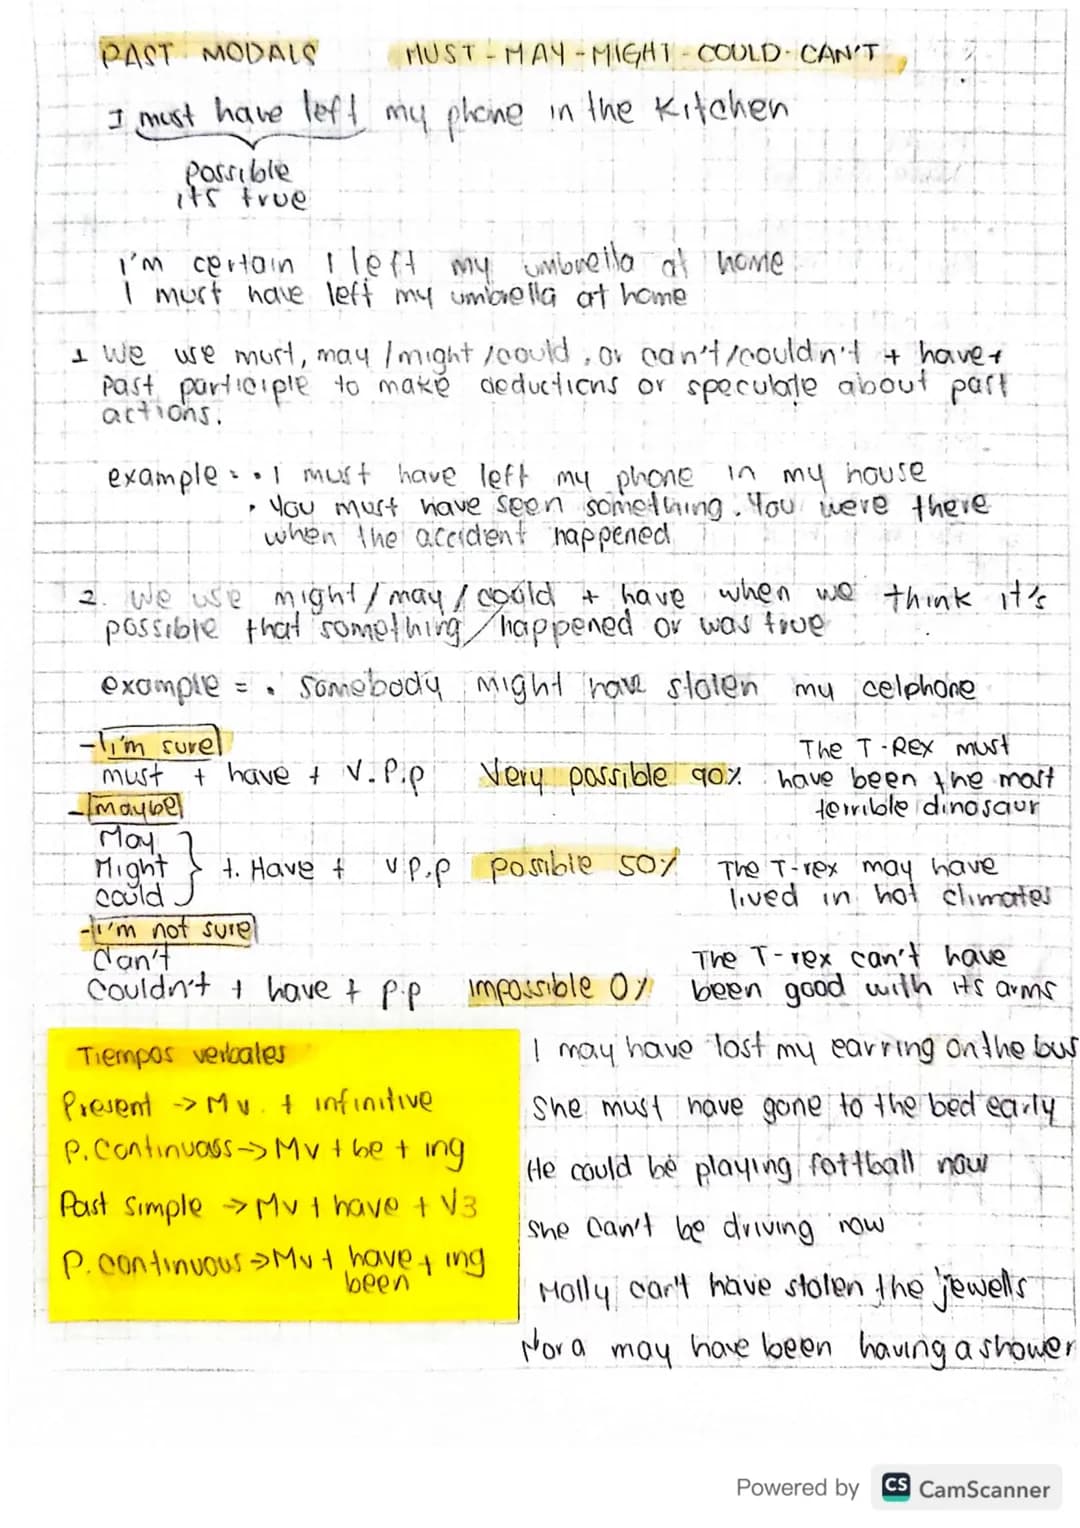 PAST MODALS MUST - MAY - MIGHT - COULD - CAN'T
I must have left my phone in the kitchen
possible
it's true
I'm certain I left my umbrella at home
I must have left my umbrella at home
1 We use must, may / might / could, or can't / couldn't + have +
Past participle to make deductions or speculate about past
actions.
example = • I must have left my phone in my house
• You must have seen something. You were there
when the accident happened
2. We use might / may / could + have when we think it's
possible that something / happened or was true
example = • somebody might have stolen my celphone
- I'm sure
must + have + V.P.p Very possible 90% The T-Rex must have been the most terrible dinosaur
- maybe
May
Might + Have + v.p.p possible 50% The T-rex may have
could lived in hot climates
- I'm not sure
Can't The T-rex can't have
Couldn't + have + p.p impossible 0% been good with its arms
Tiempos verbales
Present -> Mv. + infinitive
P. Continuass -> Mv + be + ing
Past simple -> Mv + have + V3
P. continuous -> Mv + have + ing
been
I may have lost my earring on the bus
She must have gone to the bed early
He could be playing fottball now
She can't be driving now
Molly can't have stolen the jewells
Nora may have been having a shower
Powered by CS CamScanner